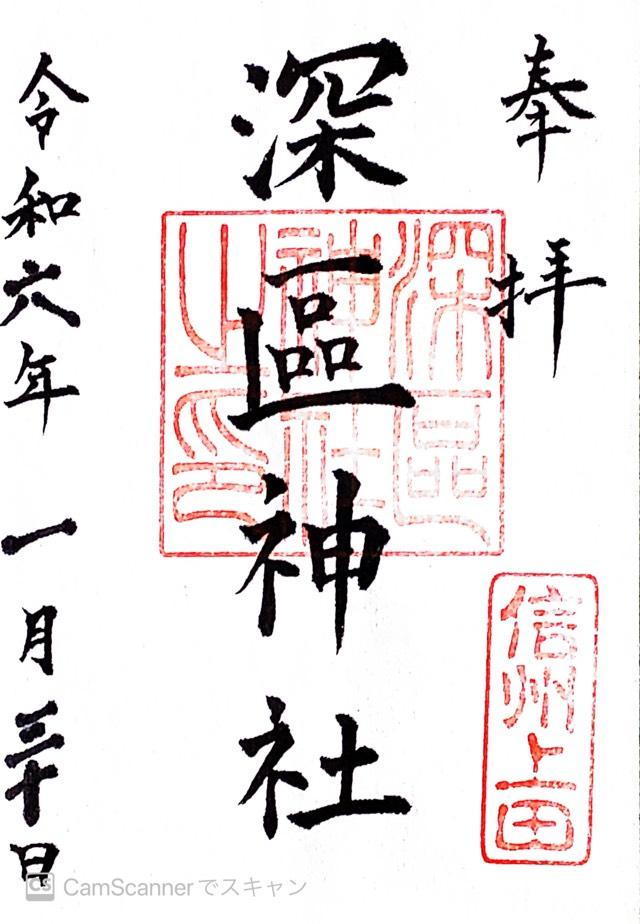 奉拝
深區神社
令和六年一月三十日
深區神社之印
信州上田
CS CamScannerでスキャン